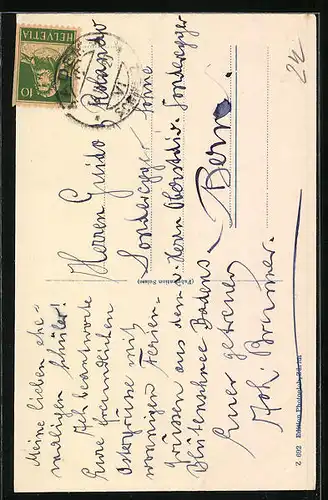 HELVETIA
10
24
Herren Guido & Rolando
Sonderegger Söhne
Herrn Oberstdiv. Sonderegger
Bern.
(Fabrication Suisse)
Meine lieben ehe-
maligen Schüler!
Ich beantworte
Eure freundlichen
Ostergrüsse mit
wonnigen Ferien-
grüssen aus dem
Blütenschnee Badens
Euer getreuer
Joh. Brunner.
Z 692 Edition Photoglob, Zürich